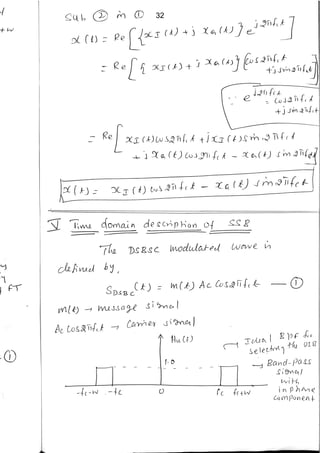 Sub ② in ① 32
x(t) = Re[{xI(t) + j xQ(t)} e^j2πfct]
= Re[{xI(t) + j xQ(t)} {cos2πfct + j sin2πfct}]
∵ e^j2πfct = cos2πfct + j sin2πfct
= Re[xI(t) cos2πfct + j xI(t) sin2πfct
+ j xQ(t) cos2πfct - xQ(t) sin2πfct]
x(t) = xI(t) cos2πfct - xQ(t) sin2πfct
V Time domain description of SSB
The DSBSC modulated wave is
defined by,
SDSBC(t) = m(t) Ac cos2πfct — ①
m(t) → message signal
Ac cos2πfct → Carrier signal
Hu(f)
Ideal BPF for
selecting the USB
1.0
Band-pass
signal
with
in phase
component
-fc-w -fc 0 fc fc+w
FT
①